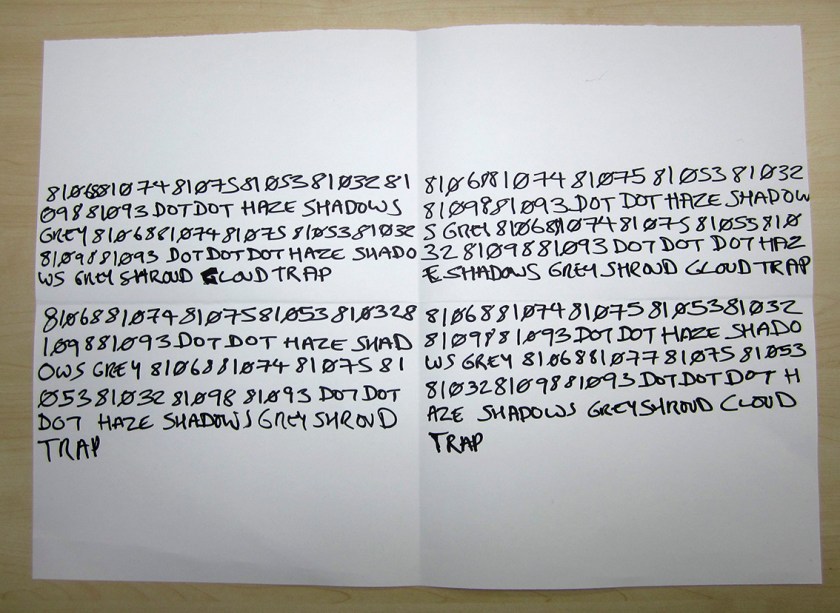 810688107481075810538103281
09881093 DOTDOT HAZE SHADOWS
GREY 8106881074 81075 8105381032
8109881093 DOTDOTDOT HAZE SHADO
WS GREY SHROUD CLOUD TRAP
8106881074 81075 81053 81032
8109881093 DOT DOT HAZE SHADOW
S GREY 8106881074 81075 81053810
32 8109881093 DOT DOT DOT HAZ
E SHADOWS GREY SHROUD CLOUD TRAP
81068810748107581053810328
109881093 DOTDOT HAZE SHAD
OWS GREY 8106881074 81075 81
05381032 81098 81093 DOT DOT
DOT HAZE SHADOWS GREY SHROUD
TRAP
8106881074 81075 8105381032
8109881093 DOTDOT HAZE SHADO
WS GREY 8106881077 81075 81053
810328109881093 DOTDOTDOT H
AZE SHADOWS GREYSHROUD CLOUD
TRAP